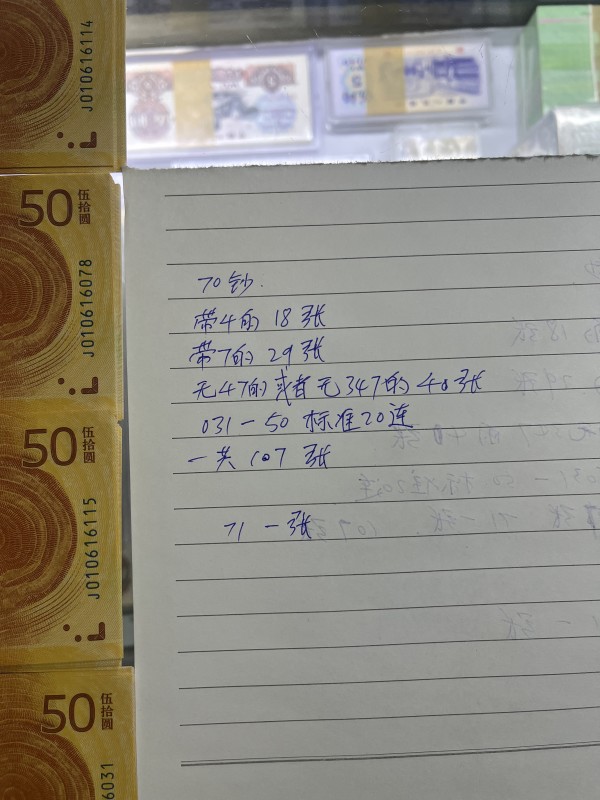 J010616114
50
伍拾圆
J010616078
50
伍拾圆
J010616115
50
伍拾圆
6031
70钞.
带4的 18张
带7的 29张
无47的或者无347的 40张
031-50 标准20连
一共 107张
71 一张